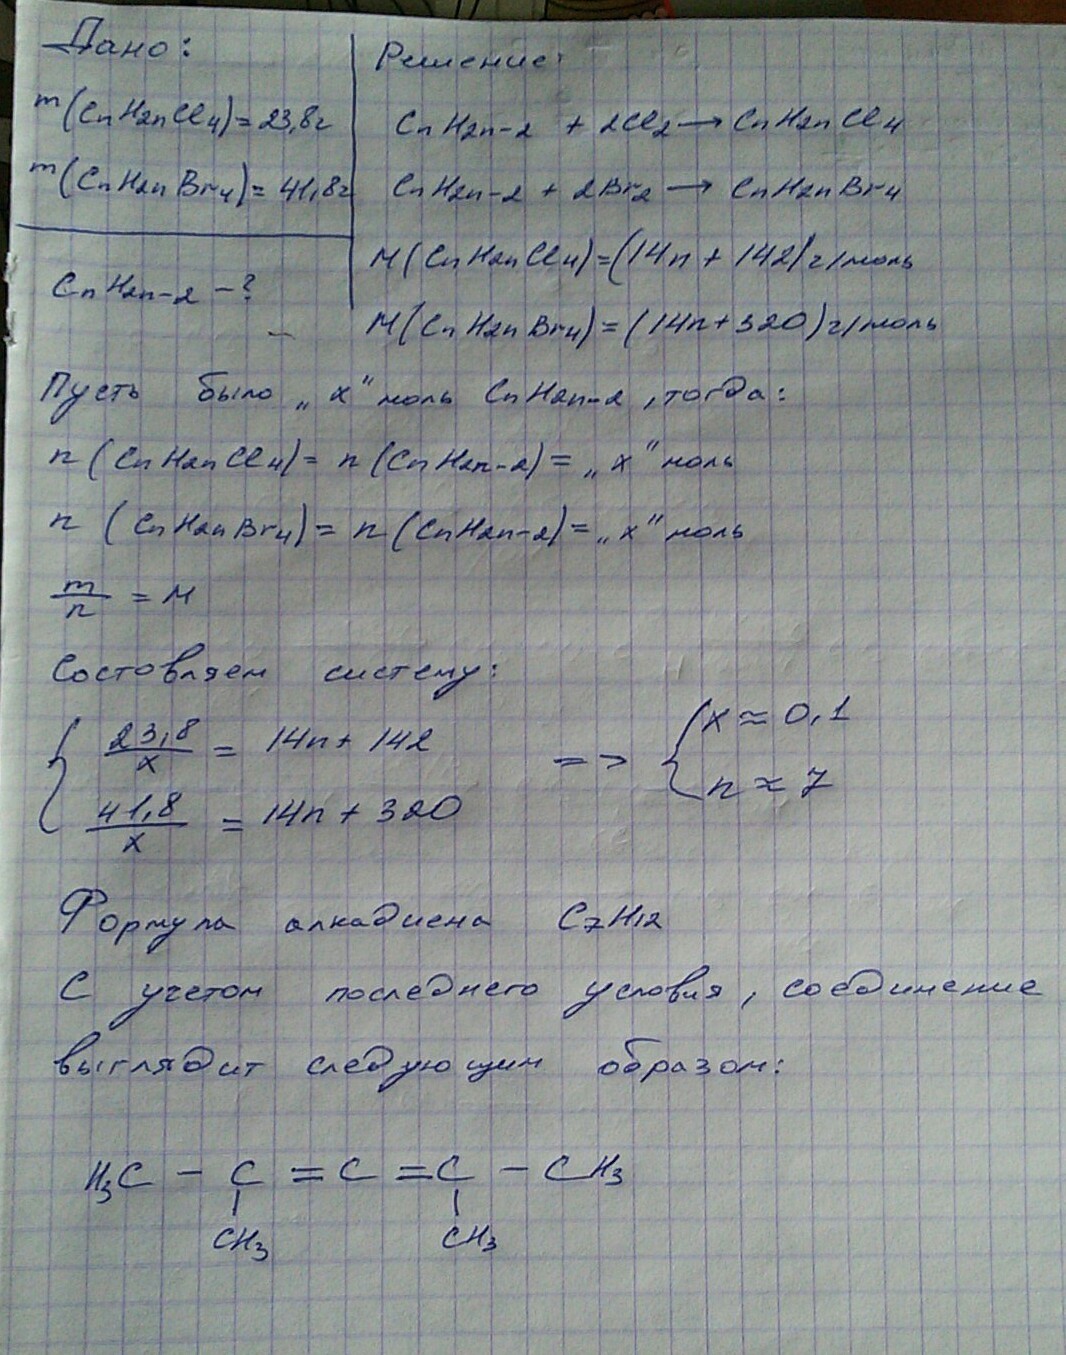 Дано:
m(CnH2nCl4)=23,8г
m(CnH2nBr4)=41,8г
CnH2n-2 -?
Решение:
CnH2n-2 + 2Cl2 → CnH2nCl4
CnH2n-2 + 2Br2 → CnH2nBr4
M(CnH2nCl4)=(14n+142)г/моль
M(CnH2nBr4)=(14n+320)г/моль
Пусть было „x" моль CnH2n-2, тогда:
n(CnH2nCl4)= n(CnH2n-2)= „x" моль
n (CnH2nBr4)= n(CnH2n-2)= „x" моль
m/n = M
Состовляем систему:
{ 23,8/x = 14n+142
41,8/x = 14n+320
=> { x≈0,1
n≈7
Формула алкадиена C7H12
С учетом последнего условия, соединение
выглядит следующим образом:
H3C - C = C = C - CH3
CH3 CH3